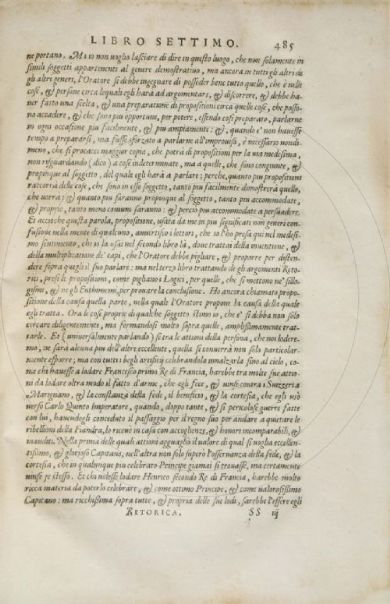 LIBRO SETTIMO. 485
ne portano. Ma io non voglio lasciare di dire in questo luogo, che non solamente in
simili soggetti appartenenti al genere demostrativo, ma ancora in tutti gli altri de
gli altri generi, l'Oratore si debbe ingegnare di posseder bene tutto quello, che è nelle
cose, & persone circa le quali egli harà ad argomentare, & discorrere, & debbe ha-
ver fatto una scelta, & una preparatione di propositioni circa quelle cose, che posso-
no accadere, & che sono più opportune, per potere, essendo così preparato, parlarne
in ogni occasione più facilmente, & più ampiamente: &, quando e' non havesse
tempo a prepararsi, ma fusse sforzato a parlarne all'improviso, è necessario nondi-
meno, che si procacci maggior copia, che potrà di propositioni per la via medesima,
non riguardando (dico) a cose indeterminate, ma a quelle, che sono congiunte, &
propinque al soggetto, del quale egli harà a parlare; perche, quanto più propositioni
raccorrà delle cose, che sono in esso soggetto, tanto più facilmente dimostrerà quello,
che vorrà; & quanto più saranno propinque al soggetto, tanto più accommodate,
& proprie, tanto meno comuni saranno; & perciò più accommodate a persuadere.
Et accioche questa parola, propositione, usata da me in più significati non generi con-
fusione nella mente di alcuno, avvertisco i lettori, che io l'ho presa qui nel medesi-
mo sentimento, che io la usai nel secondo libro là, dove trattai della inventione, &
della multiplicatione de' capi, che l'Oratore debbe pigliare, & proporre per disten-
dere sopra quegli il suo parlare: ma nel terzo libro trattando de gli argomenti Reto-
rici, presi le propositioni, come pigliano i Logici, per quelle, che si mettono ne' sillo-
gismi, & ne gli Enthimemi, per provare la conclusione. Ho ancora chiamata propo-
sitione della causa quella parte, nella quale l'Oratore propone la causa della quale
egli tratta. Ora le cose proprie di qualche soggetto stimo io, che e' si debba non solo
circare diligentemente, ma formandosi molto sopra quelle, amplissimamente trat-
tarle. Et (universalmente parlando) se tra le attioni della persona, che noi lodere-
mo, ne sarà alcuna più dell'altre eccellente, quella si converrà non solo particolar-
mente esporre; ma con tutti i begli artificij celebrandola innalzarla sino al cielo, co-
me chi havesse a lodare Francesco primo Re di Francia, harebbe tra molte sue attio-
ni da lodare oltra modo il fatto d'arme, che egli fece, & vinse contra i Suizzeri a
Marignano, & la constanza della fede, il beneficio, & la cortesia, che egli usò
verso Carlo Quinto Imperatore, quando, doppo tante, & sì pericolose guerre fatte
con lui, havendogli conceduto il passaggio per il regno suo per andare a quietare le
ribellioni della Fiandra, lo riceve in casa con accoglienze, & honore incomparabili, &
inauditi. Nella prima delle quali attioni agguagliò il valore di qual si voglia eccellen-
tissimo, & glorioso Capitano, nell'altra non solo superò l'osservanza della fede, & la
cortesia, che in qualunque più celebrato Principe giamai si trovasse, ma certamente
vinse se stesso. Et chi volesse lodare Henrico secondo Re di Francia, harebbe molto
ricca materia da poterlo celebrare, & come ottimo Principe, & come valorosissimo
Capitano: ma ricchissima sopra tutte, & propria delle sue lodi, sarebbe l'essere egli
RETORICA. SS iij